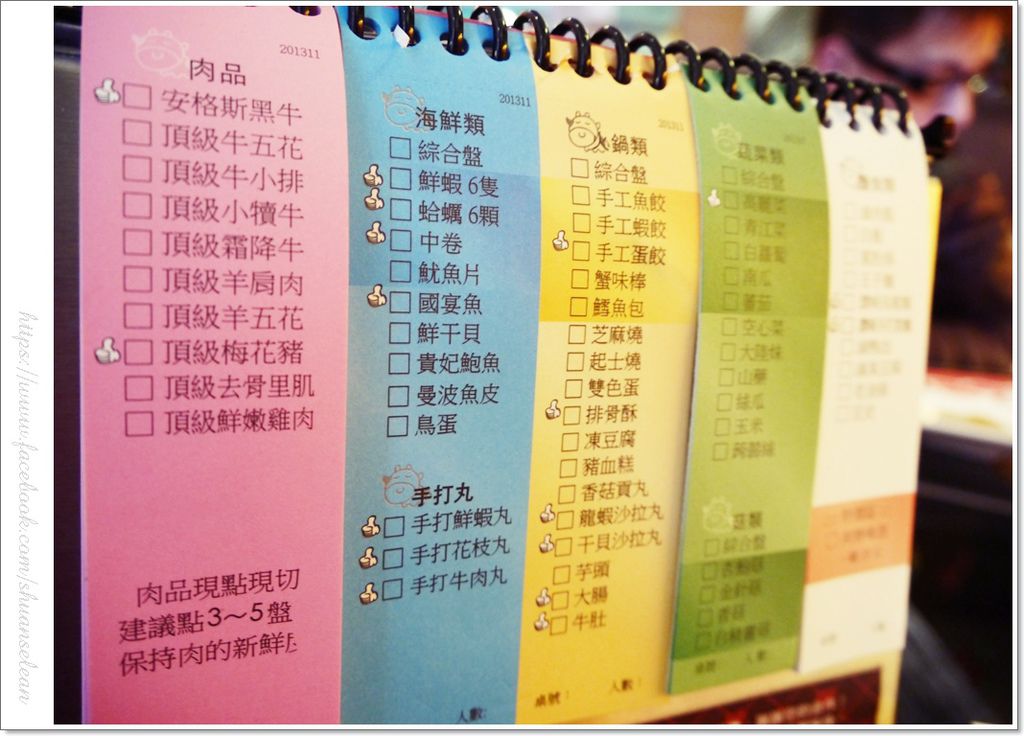 肉品
201311
安格斯黑牛
頂級牛五花
頂級牛小排
頂級小犢牛
頂級霜降牛
頂級羊肩肉
頂級羊五花
頂級梅花豬
頂級去骨里肌
頂級鮮嫩雞肉
肉品現點現切
建議點3～5盤
保持肉的新鮮
海鮮類
201311
綜合盤
鮮蝦 6隻
蛤蠣 6顆
中卷
魷魚片
國宴魚
鮮干貝
貴妃鮑魚
曼波魚皮
鳥蛋
手打丸
手打鮮蝦丸
手打花枝丸
手打牛肉丸
人數:
火鍋類
201311
綜合盤
手工魚餃
手工蝦餃
手工蛋餃
蟹味棒
鱈魚包
芝麻燒
起士燒
雙色蛋
排骨酥
凍豆腐
豬血糕
香菇貢丸
龍蝦沙拉丸
干貝沙拉丸
芋頭
大腸
牛肚
桌號：
人數：
蔬菜類
綜合盤
高麗菜
青江菜
白蘿蔔
南瓜
蕃茄
空心菜
大陸妹
山藥
絲瓜
玉米
蒟蒻絲
菇類
綜合盤
杏鮑菇
金針菇
香菇
桌號：
人數：
https://www.facebook.com/shuanselean